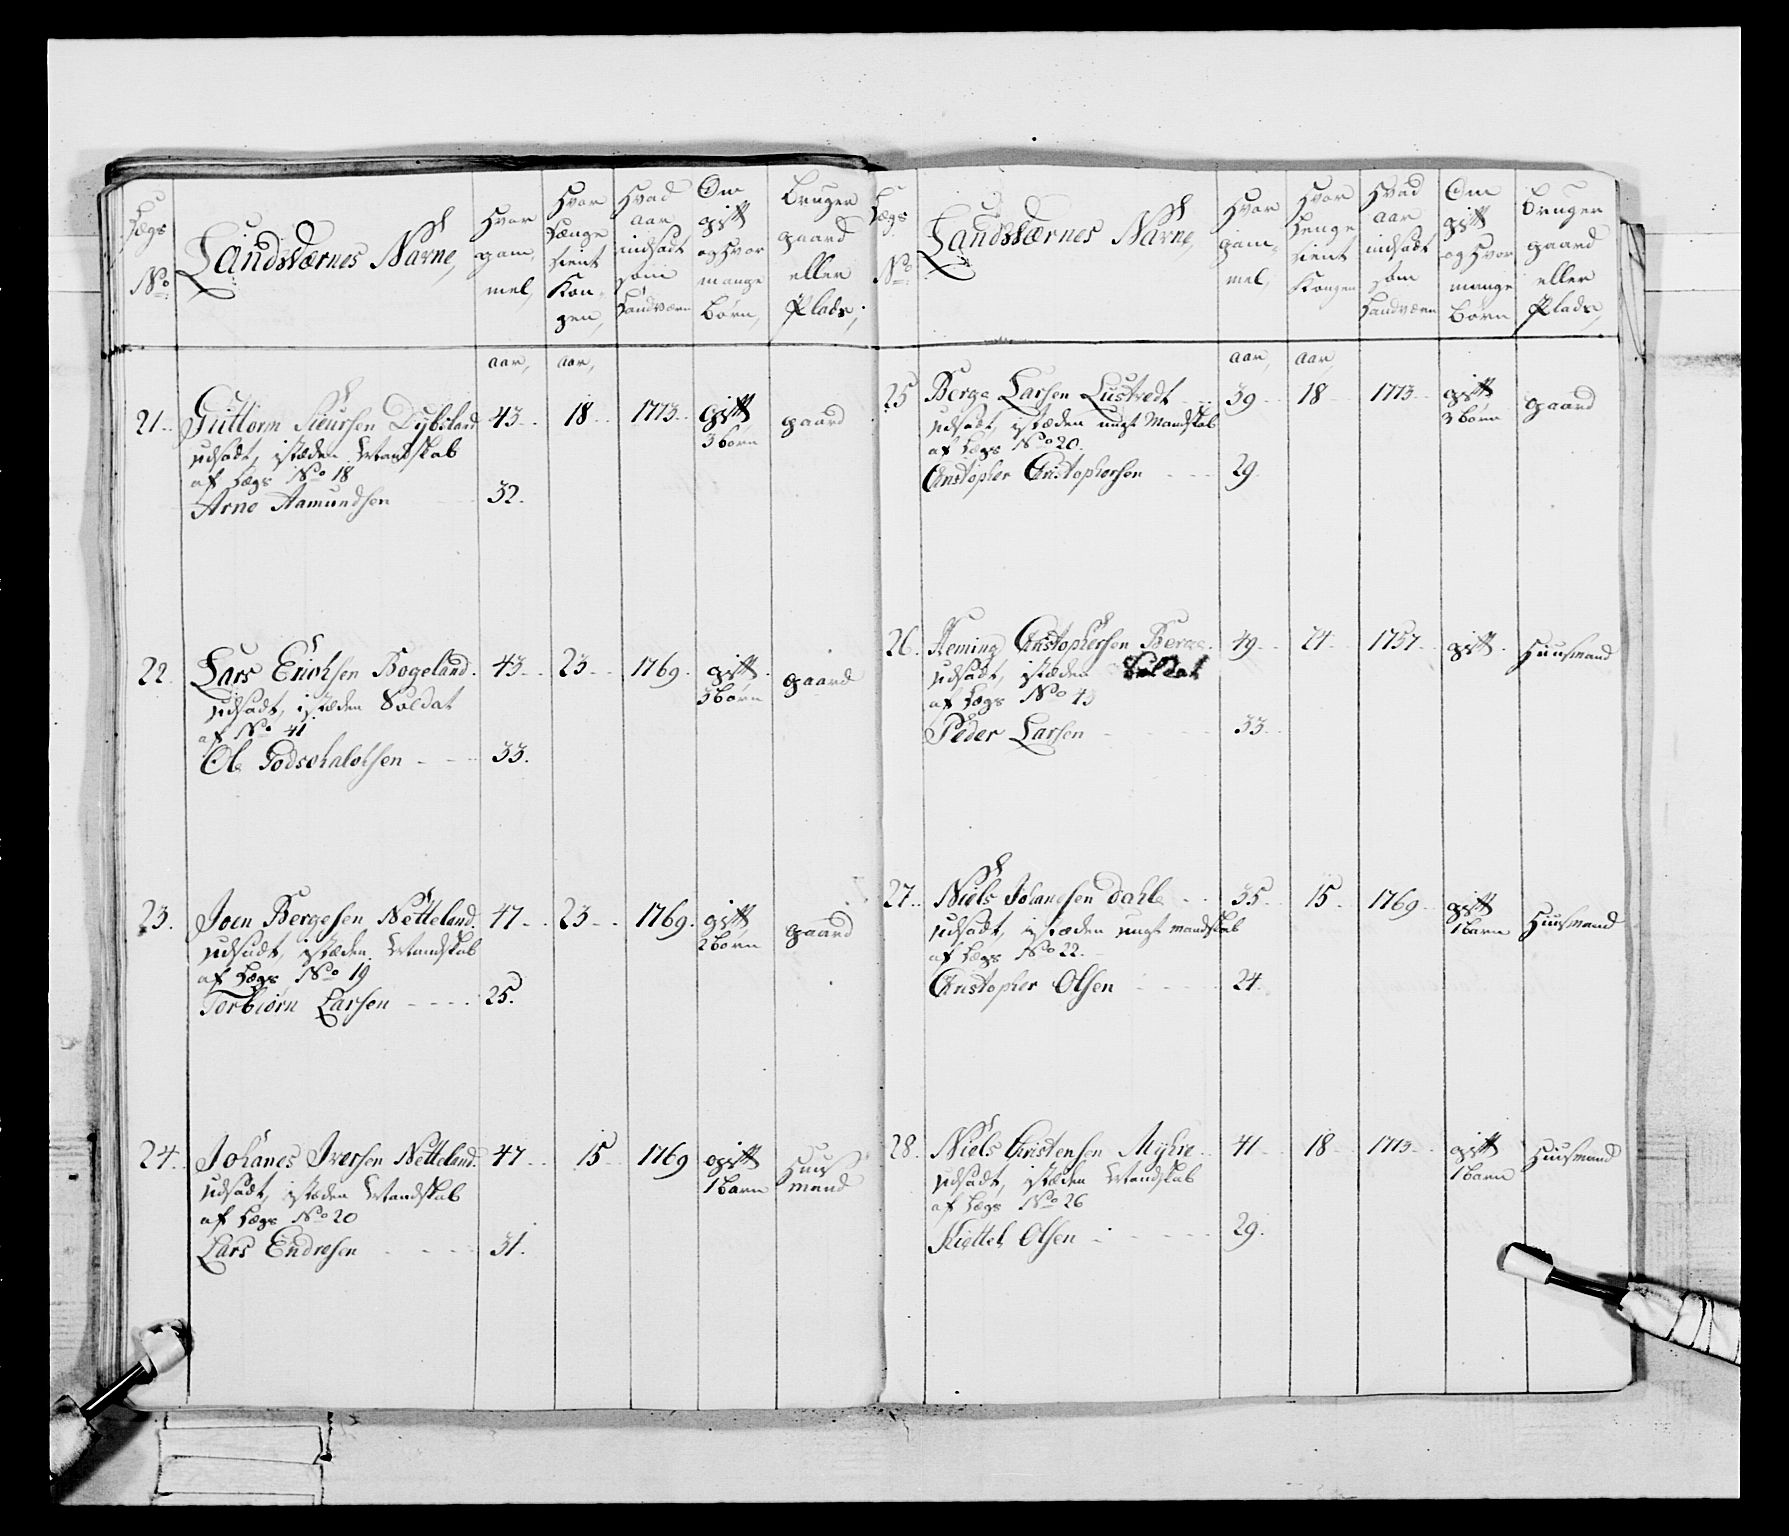 Lægs No
Landsværnes Navne,
Hvor gam, mel,
Hvor Længe tient Kon, gen,
Hvad aar indsadt som Landværn
Om gift og Hvor mange Børn,
Bruger gaard eller Plads,
aar, aar,
21. Guttorm Sieursen Dybeland 43 18 1773 gift 3 børn gaard
udsadt, i stæden Mandskab
af Lægs No 18
Arne Aamundsen 32.
22. Lars Erichsen Bogeland 43 23 1769 gift 3 børn gaard
udsadt, i stæden Soldat
af No 41
Ole Godschalchsen 33.
23. Joen Bergesen Netteland 47 23 1769 gift 2 børn gaard
udsadt, i stæden Mandskab
af Lægs No 19
Torbiørn Larsen 25.
24. Johanes Iversen Netteland 47 15 1769 gift 1 barn Huusmand
udsadt, i stæden Mandskab
af Lægs No 20
Lars Endresen 31.
Lægs No
Landsværnes Navne,
Hvor gam, mel,
Hvor Lenge tient Kongen
Hvad aar indsadt som Landværn
Om gift og Hvor mange Børn
Bruger gaard eller Plads,
aar, aar,
25 Berge Larsen Lustvedt 39 18 1773 gift 3 børn gaard
udsadt, i stæden ungt Mandskab
af Lægs No 20
Christopher Christophersen 29
26. Fleming Christophersen Berge 49 24 1757 gift Huusmand
udsadt, i stæden Soldat
af Lægs No 43
Peder Larsen 33
27. Niels Johanesen Dahle 35 15 1769 gift 1 barn Huusmand
udsadt, i stæden ungt mandskab
af Lægs No 22
Christopher Olsen 24
28. Niels Christensen Myhre 41 18 1773 gift 1 barn Huusmand
udsadt, i stæden Mandskab
af Lægs No 26
Kiettel Olsen 29.